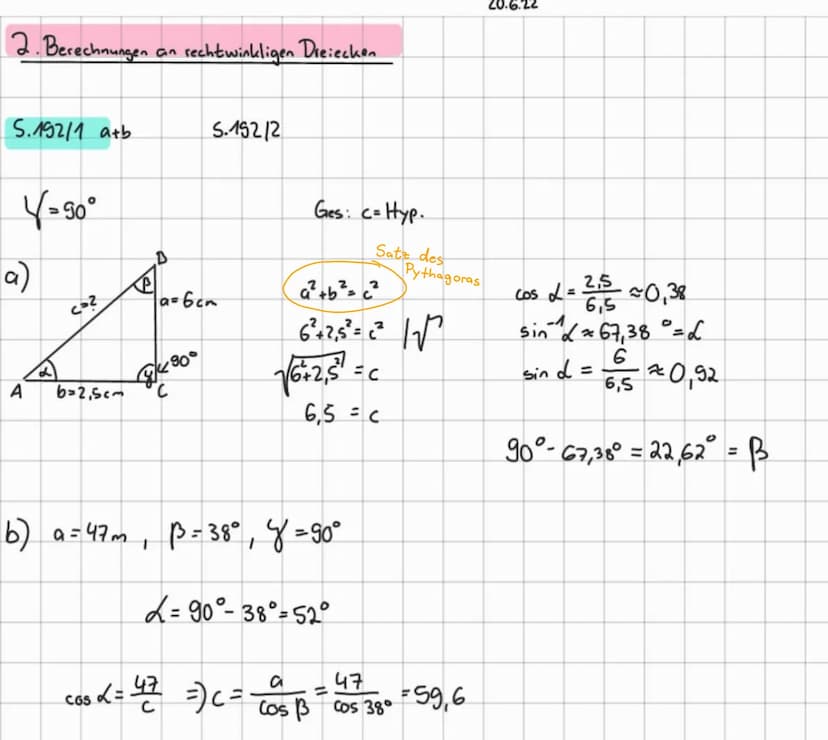 20.6.22
2. Berechnungen an rechtwinkligen Dreiecken
S.192/1 a+b S.192/2
γ=90°
Ges: c=Hyp.
a)
B
β
c=?
a=6cm
α
γ
90°
A
b=2,5cm
C
Satz des
Pythagoras
a²+b²=c²
6²+2,5²=c² |√
√6²+2,5² = c
6,5 = c
cos α = 2,5/6,5 ≈0,38
sin⁻¹ α ≈ 67,38 °=α
sin α = 6/6,5 ≈ 0,92
90°- 67,38° = 22,62° = β
b) a=47m, β=38°, γ=90°
α=90°-38°=52°
cos α=47/c ⇒ c = a/cos β = 47/cos 38° =59,6